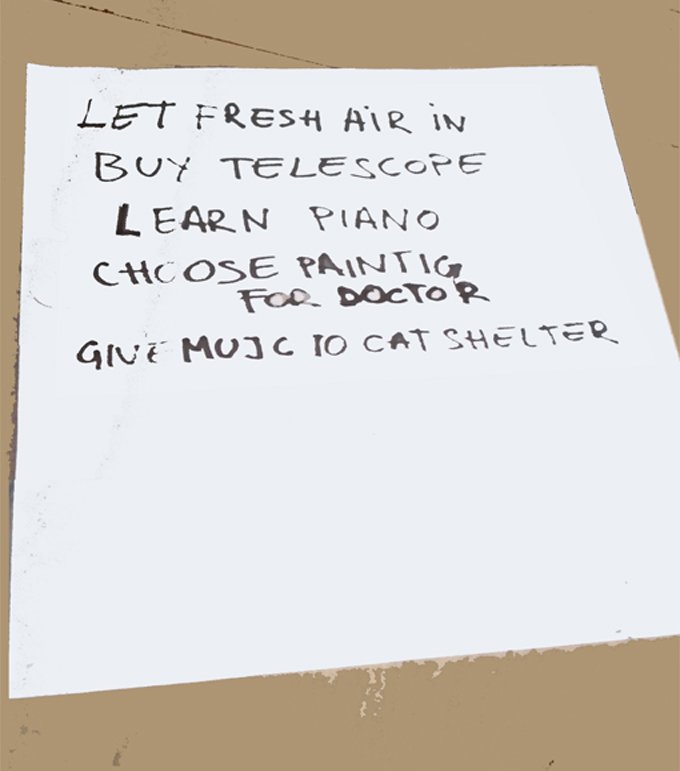 LET FRESH AIR IN
BUY TELESCOPE
LEARN PIANO
CHOOSE PAINTIG
FOR DOCTOR
GIVE TO CAT SHELTER